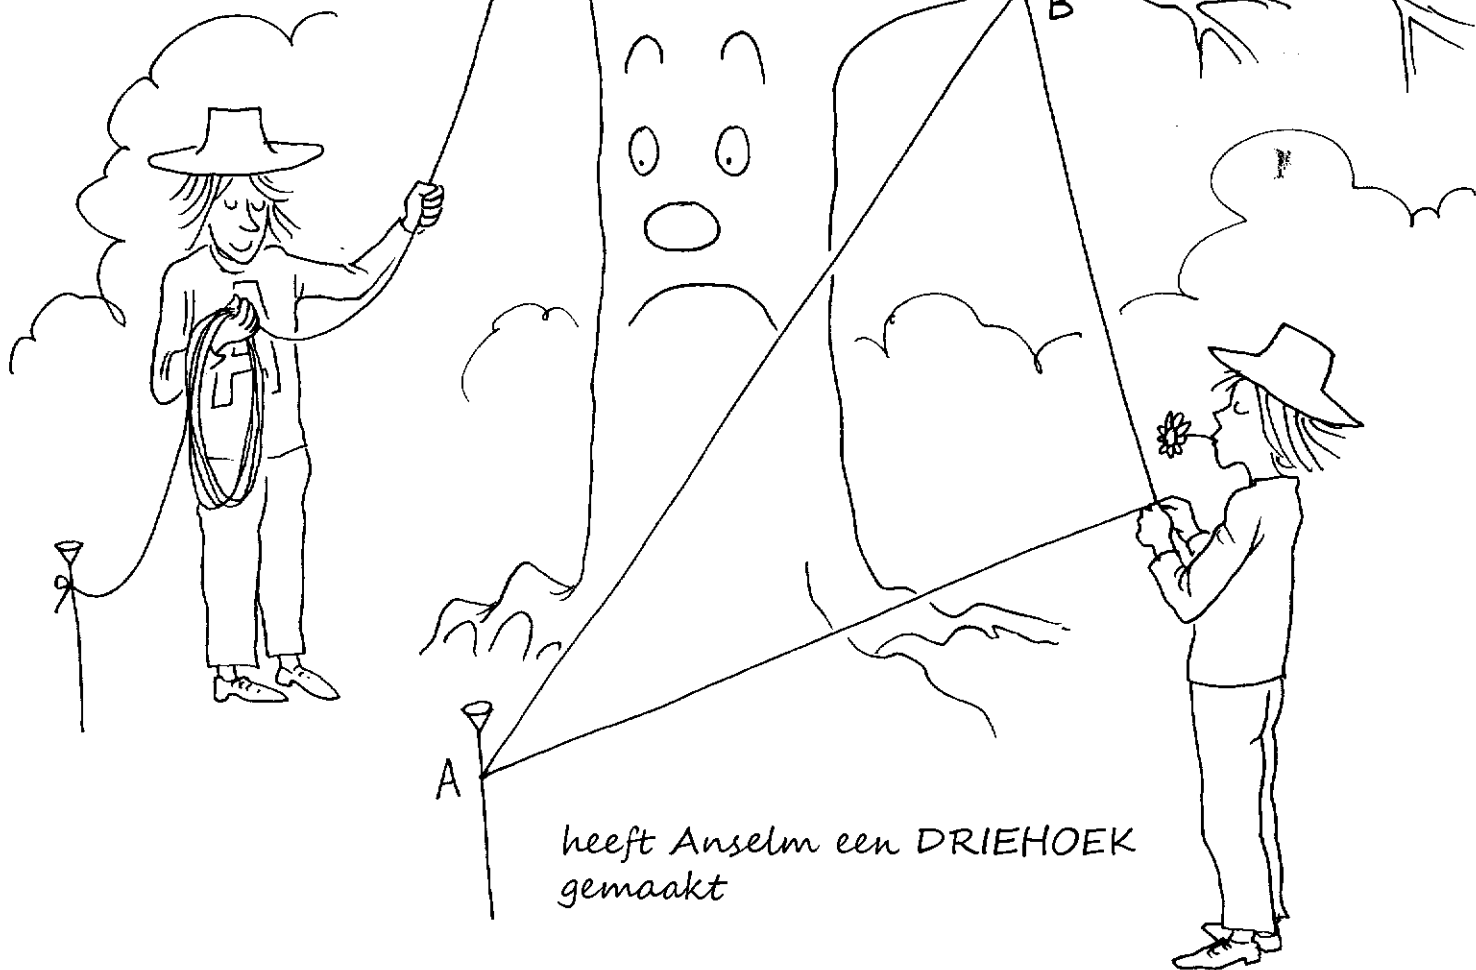 B
A
heeft Anselm een DRIEHOEK
gemaakt